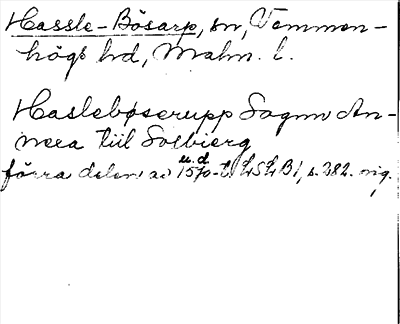 Hassle-Bösarp, sn, Vemmen-
högs hd, Malm. l.
Haslebøserupp Sogun An-
nera tiil Solbierg
förra delen av u.d 1570-t. LSLB1, s. 282. nig.